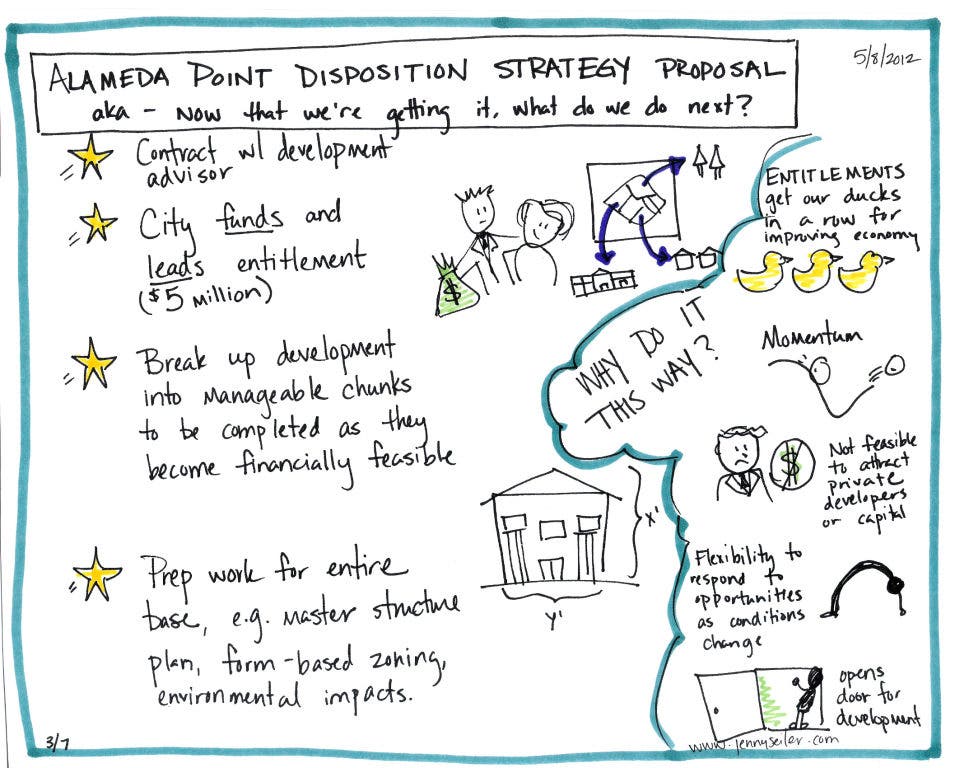 ALAMEDA POINT DISPOSITION STRATEGY PROPOSAL
aka - Now that we're getting it, what do we do next?
5/8/2012
Contract w/ development
advisor
City funds and
leads entitlement
($5 million)
$
Break up development
into manageable chunks
to be completed as they
become financially feasible
Prep work for entire
base, e.g. master structure
plan, form-based zoning,
environmental impacts.
X'
Y'
WHY DO IT
THIS WAY?
ENTITLEMENTS
get our ducks
in a row for
improving economy
Momentum
$
Not feasible
to attract
private
developers
or capital
Flexibility to
respond to
opportunities
as conditions
change
opens
door for
development
3/7
www.jennyseiler.com